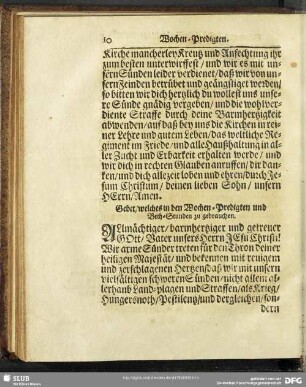 10 Wochen-Predigten.
Kirche mancherley Kreutz und Anfechtung ihr
zum besten unterwirffest / und wir es mit un-
sern Sünden leider verdienet / daß wir von un-
sern Feinden betrübet und geängstiget werden /
so bitten wir dich hertzlich du wollest uns unse-
re Sünde gnädig vergeben / und die wohlver-
diente Straffe durch deine Barmhertzigkeit
abwenden / auf daß bey uns die Kirchen in rei-
ner Lehre und guten Leben / das weltliche Re-
giment im Friede / und alle Haußhaltung in al-
ler Zucht und Erbarkeit erhalten werde / und
wir dich in rechten Glauben anruffen / dir dan-
cken / und dich allezeit loben und ehren / durch Je-
sum Christum / deinen lieben Sohn / unsern
HErrn / Amen.
Gebet / welches in den Wochen-Predigten und
Beth-Stunden zu gebrauchen.
ALmächtiger / barmhertziger und getreuer
GOtt / Vater unsers HErrn JEsu Christi!
Wir arme Sünder treten für den Thron deiner
heiligen Majestät / und bekennen mit reuigem
und zerschlagenen Hertzen / daß wir mit unsern
vielfältigen schweren Sünden / nicht allein al-
lerhand Land-plagen und Straffen / als Krieg /
Hungersnoth / Pestilentz / und dergleichen / son-
dern
SLUB